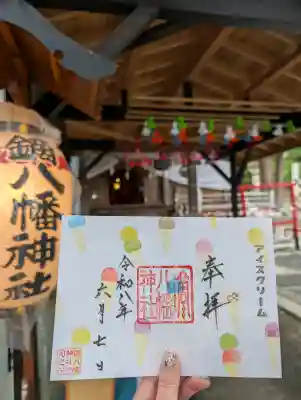 鍋八幡神社
アイスクリーム
奉拝
八幡
神社
令和八年
六月七日